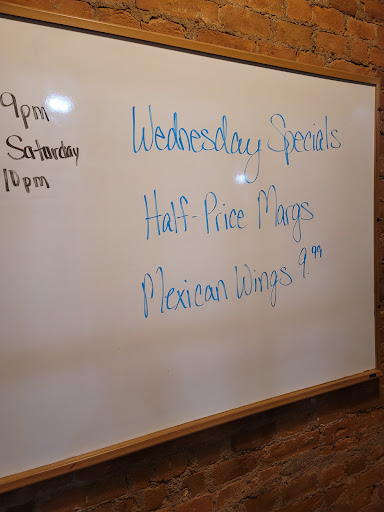 9pm
Saturday
10pm
Wednesday Specials
Half-Price Margs
Mexican Wings 9.99